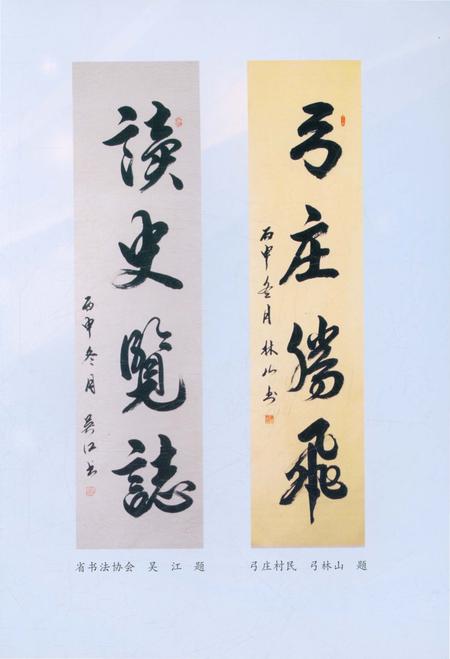 弓庄勝飛
丙申冬月 林山书
弓庄村民 弓林山 题
讀史覽誌
丙申冬月 吴江书
省书法协会 吴江 题